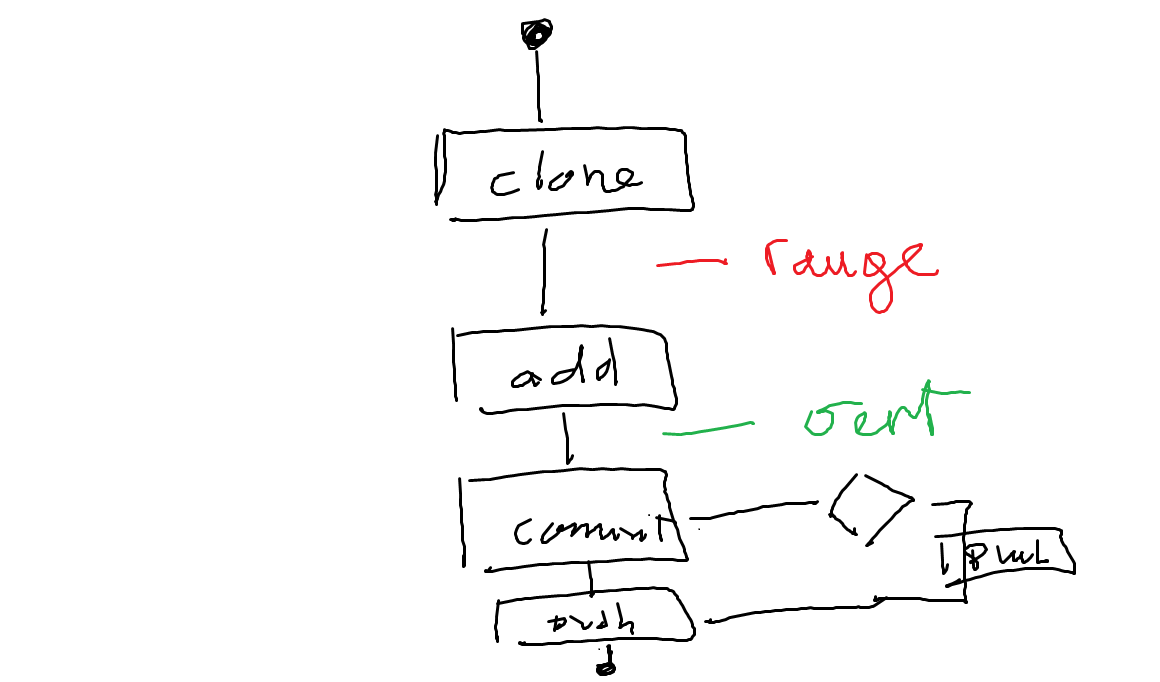 clone
rouge
add
vert
commit
pull
push